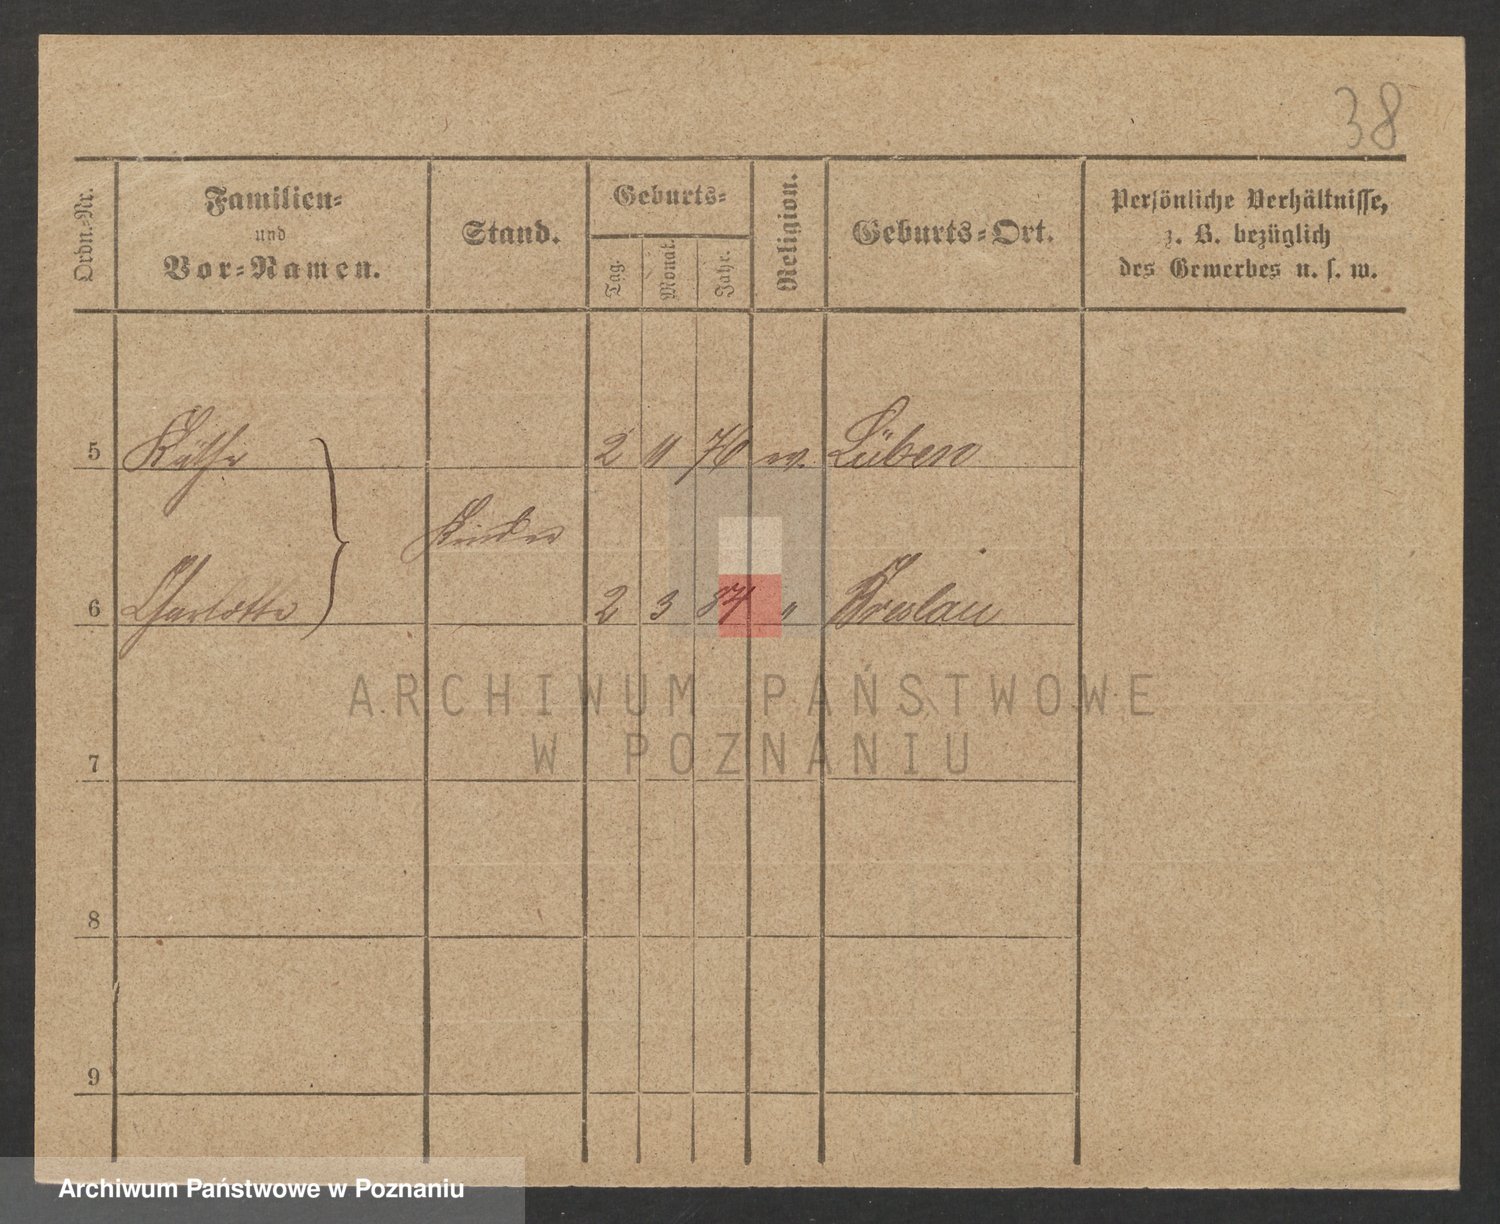 38
Ordn.-Nr.
Familien-
und
Vor-Namen.
Stand.
Geburts-
Tag.
Monat.
Jahr.
Religion.
Geburts-Ort.
Persönliche Verhältnisse,
z. B. bezüglich
des Gewerbes u. s. w.
5 Käthe 2 11 76 ev. Lüben
Kinder
6 Charlotte 2 3 87 " Breslau
ARCHIWUM PAŃSTWOWE
W POZNANIU
7
8
9
Archiwum Państwowe w Poznaniu